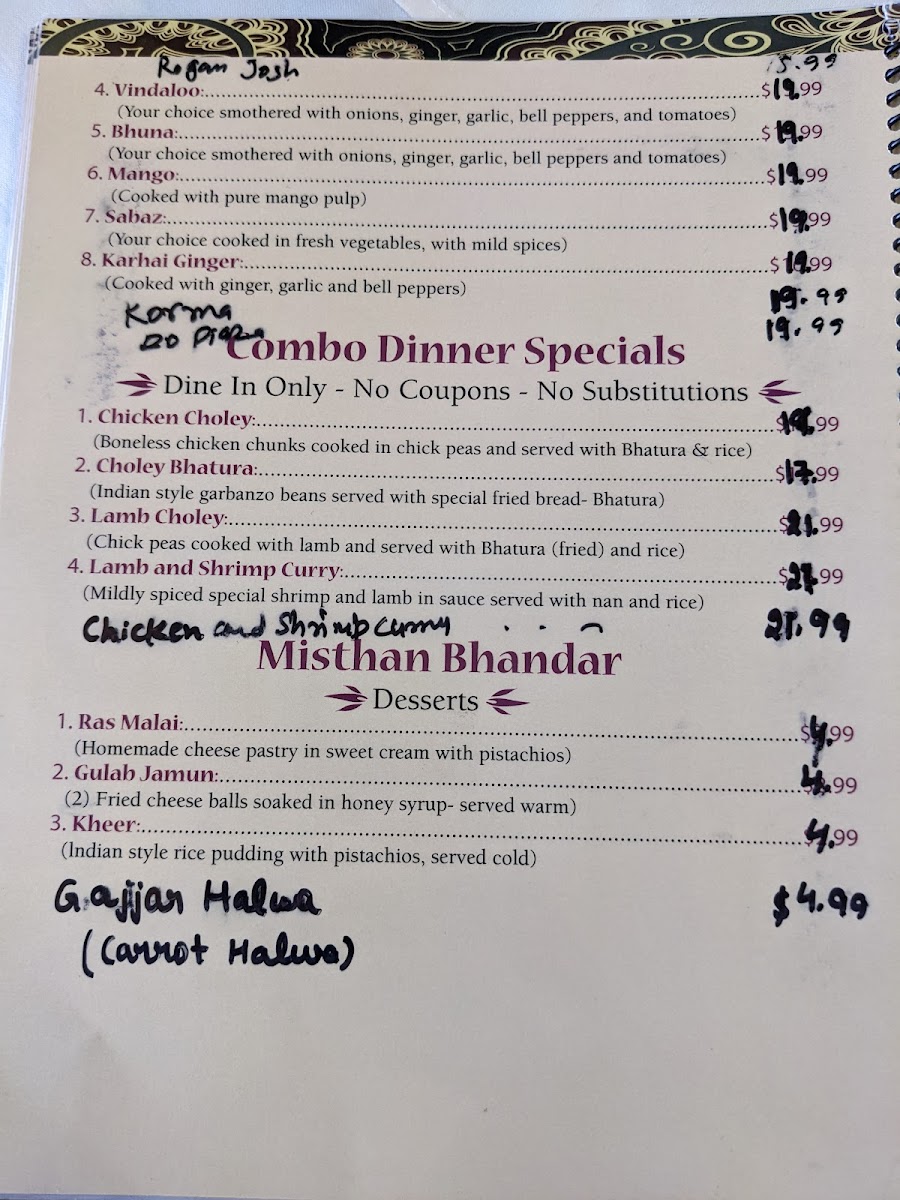 Rogan Josh 15.99
4. Vindaloo: $19.99
(Your choice smothered with onions, ginger, garlic, bell peppers, and tomatoes)
5. Bhuna: $19.99
(Your choice smothered with onions, ginger, garlic, bell peppers and tomatoes)
6. Mango: $19.99
(Cooked with pure mango pulp)
7. Sabaz: $19.99
(Your choice cooked in fresh vegetables, with mild spices)
8. Karhai Ginger: $19.99
(Cooked with ginger, garlic and bell peppers)
Korma 19.99
Do Piaza 19.99
Combo Dinner Specials
Dine In Only - No Coupons - No Substitutions
1. Chicken Choley: .99
(Boneless chicken chunks cooked in chick peas and served with Bhatura & rice)
2. Choley Bhatura: $17.99
(Indian style garbanzo beans served with special fried bread- Bhatura)
3. Lamb Choley: $21.99
(Chick peas cooked with lamb and served with Bhatura (fried) and rice)
4. Lamb and Shrimp Curry: .99
(Mildly spiced special shrimp and lamb in sauce served with nan and rice)
Chicken and Shrimp Curry
Misthan Bhandar
Desserts
1. Ras Malai: $4.99
(Homemade cheese pastry in sweet cream with pistachios)
2. Gulab Jamun: $4.99
(2) Fried cheese balls soaked in honey syrup- served warm)
3. Kheer: $4.99
(Indian style rice pudding with pistachios, served cold)
Gajjar Halwa $4.99
(Carrot Halwa)